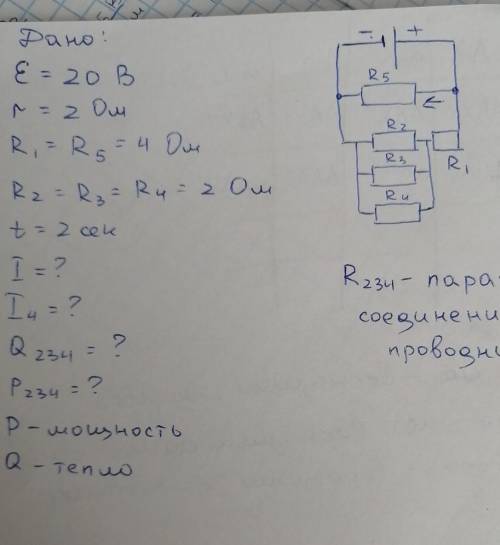 Дано:
Ɛ = 20 В
r = 2 Ом
R₁ = R₅ = 4 Ом
R₂ = R₃ = R₄ = 2 Ом
t = 2 сек
I = ?
I₄ = ?
Q₂₃₄ = ?
P₂₃₄ = ?
P - мощность
Q - тепло
- +
R₅
R₂
R₃
R₁
R₄
R₂₃₄ - пара
соединени
проводни